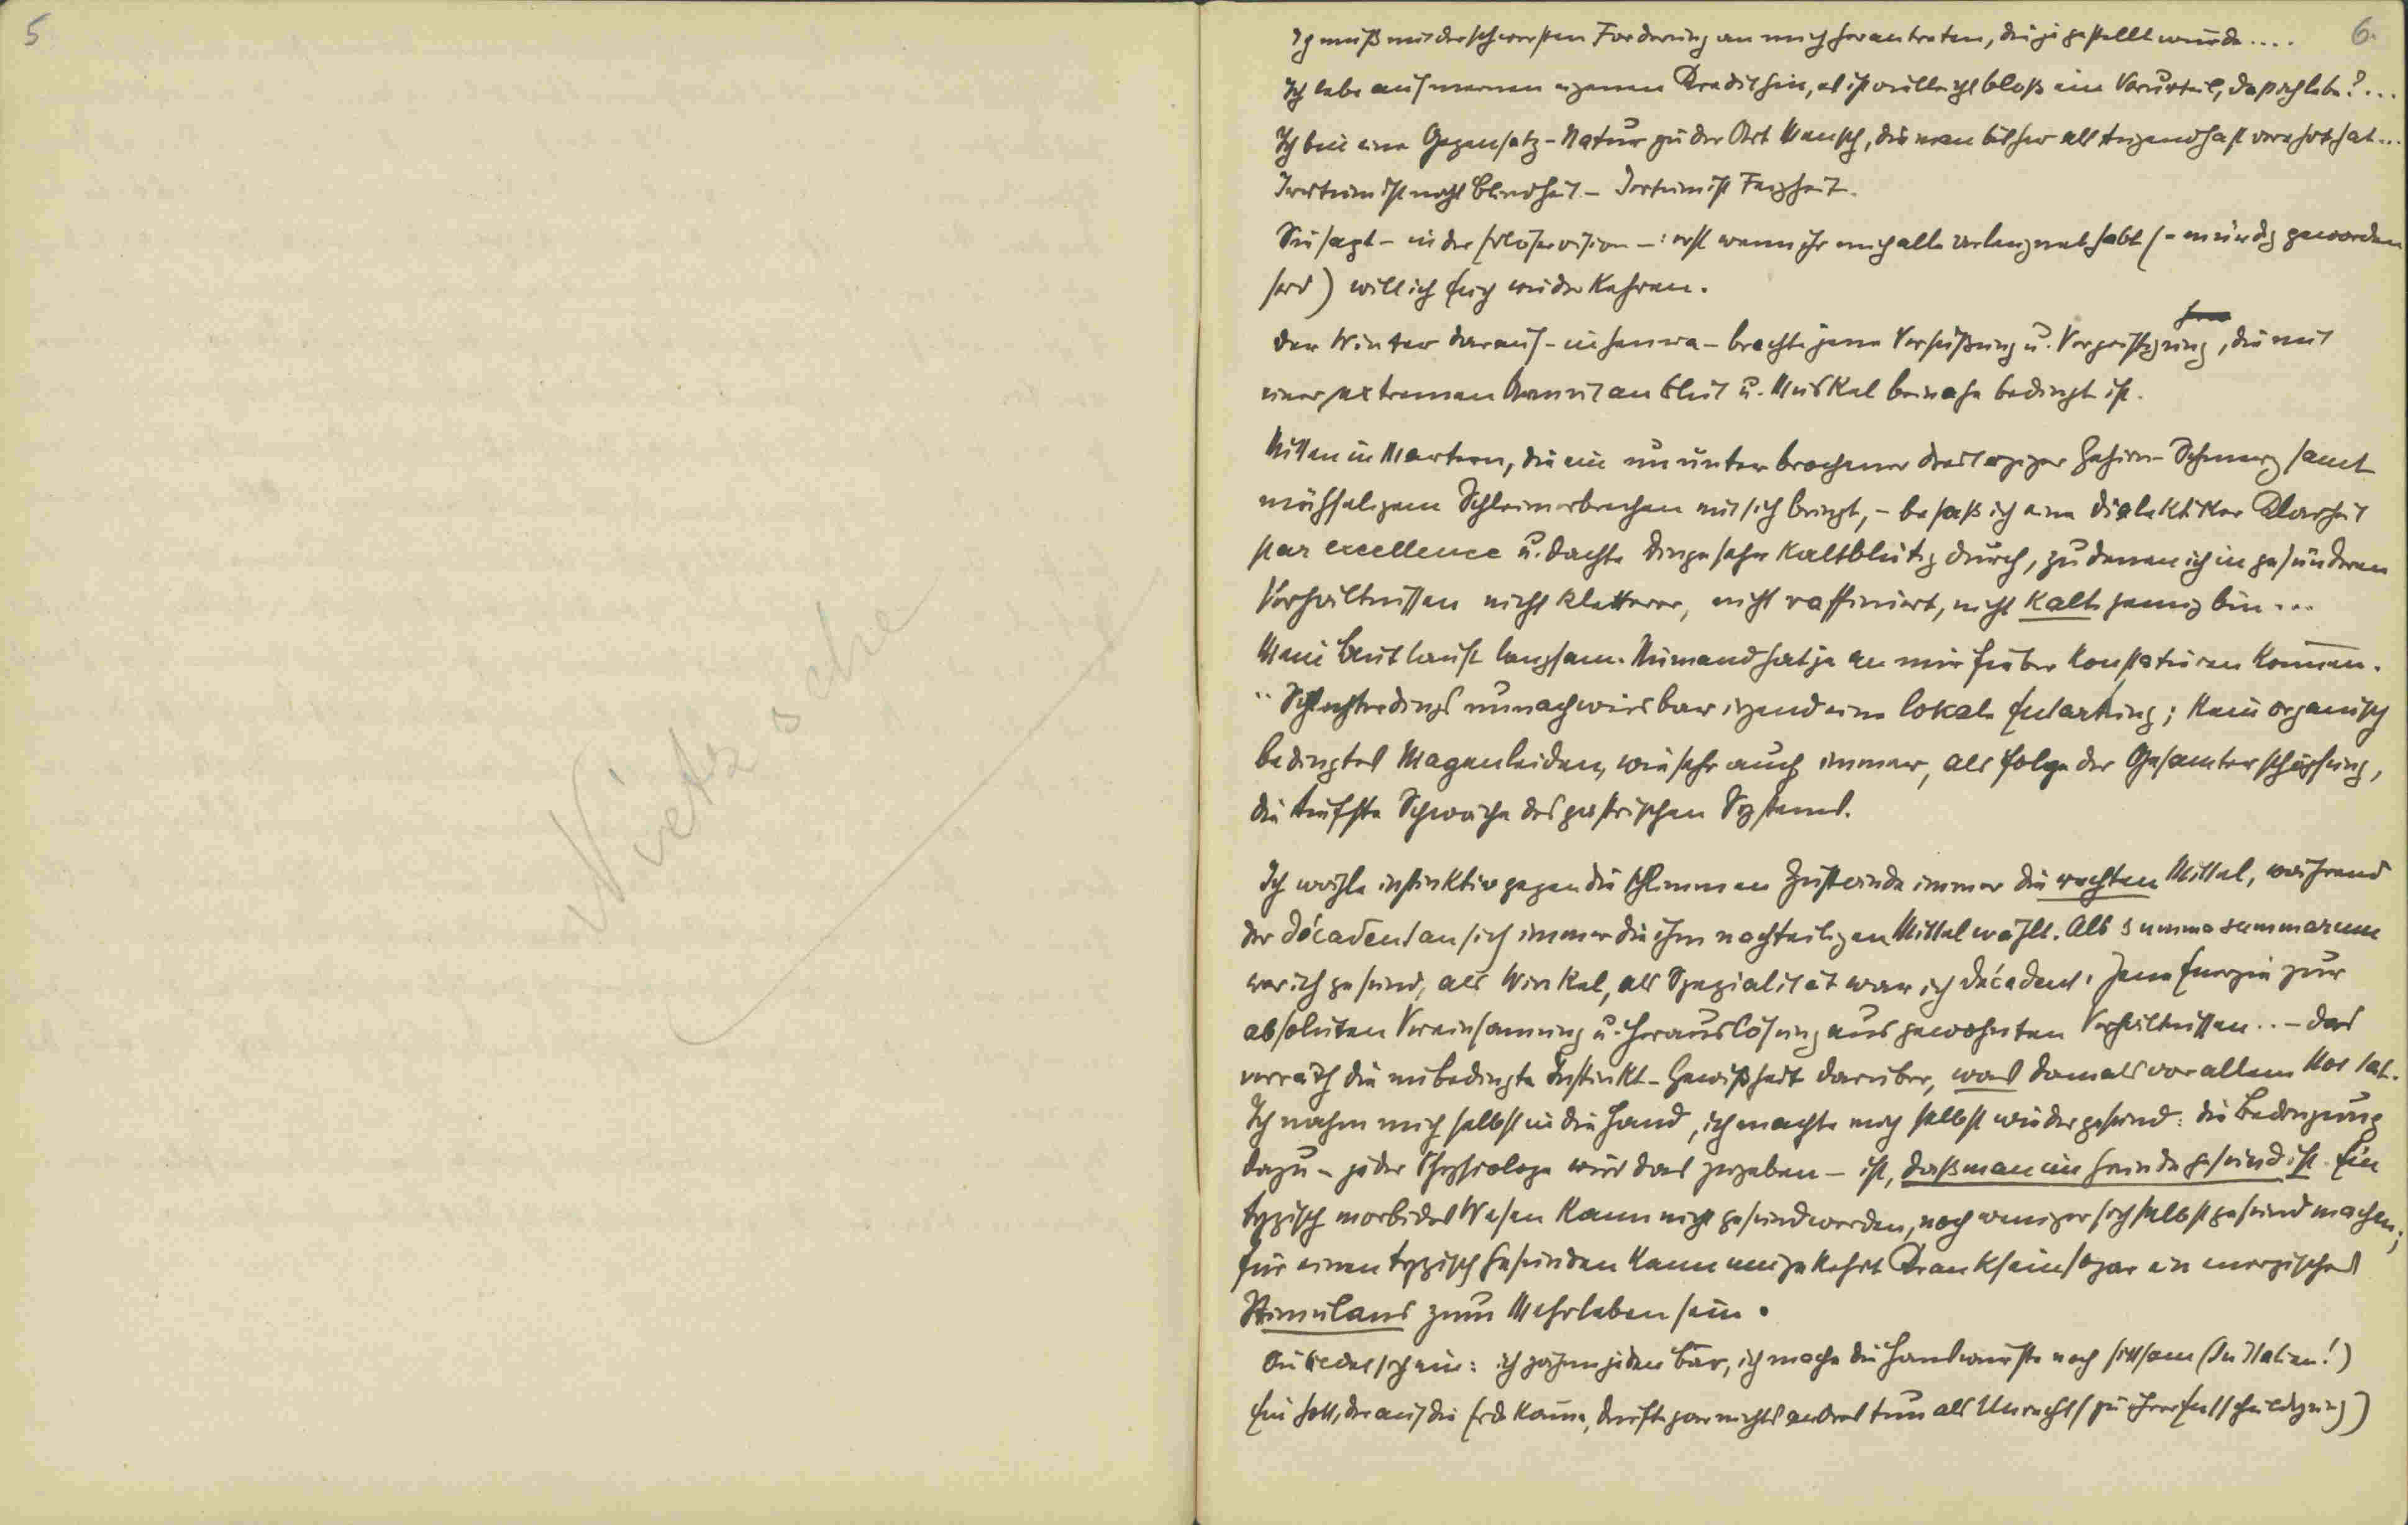 5
Nietzsche
6.
Ich muß mit der schwersten Forderung an mich herantreten, die je gestellt wurde....
Ich lebe auf meinen eigenen Kredit hin, es ist vielleicht bloß ein Vorurteil, daß ich lebe?...
Ich bin eine Gegensatz-Natur zu der Art Mensch, die man bisher als tugendhaft verehrt hat...
Irrtum ist nicht Blindheit - Irrtum ist Feigheit.
Sie sagt - in der - : erst wenn ihr mich alle verleugnet habt (- mündig geworden
seid) will ich Euch wiederkehren.
Der Winter darauf - in Genua - brachte jene Versüßung u. Vergeistigung, die mit
einer extremen Armut an Blut u. Muskel beinahe bedingt ist.
Mitten in Martern, die ein ununterbrochener dreitägiger Gehirn-Schmerz samt
mühseligem Schleimerbrechen mit sich bringt, - besaß ich eine Dialektiker Klarheit
par excellence u. dachte Dinge sehr kaltblütig durch, zu denen ich in gesünderen
Verhältnissen nicht Kletterer, nicht raffiniert, nicht kalt genug bin...
Mein Blut lauft langsam. Niemand hat je an mir Fieber konstatieren können.
.. Schlechterdings unnachweisbar irgend eine lokale Entartung; kein organisch
bedingtes Magenleiden, wie sehr auch immer, als Folge der Gesamterschöpfung,
die tiefste Schwäche des gastrischen Systems.
Ich wähle instinktiv gegen die schlimmen Zustände immer die rechten Mittel, während
der décadent an sich immer die ihm nachteiligen Mittel wählt. Als summa summarum
war ich gesund, als Winkel, als Spezialität war ich décadent. Jene Energie zur
absoluten Vereinsamung u. Herauslösung aus gewohnten Verhältnissen.. - das
verräth die unbedingte Instinkt-Gewißheit darüber, was damals vor allem Not tat.
Ich nahm mich selbst in die Hand, ich machte mich selbst wieder gesund: die Bedingung
dazu - jeder Physiologe wird das zugeben - ist, daß man im Grunde gesund ist. Ein
typisch morbides Wesen kann nicht gesund werden, noch weniger sich selbst gesund machen;
für einen typisch Gesunden kann umgekehrt Kranksein sogar ein energisches
Stimulans zum Mehrleben sein.
sich ein: ich zähme jeden Bär, ich mache die Hanswurste noch sittsam (In Italien!)
Ein Gott, der auf die Erde käme, dürfte gar nichts andres tun als Unrecht (zu ihrer Entschuldigung)